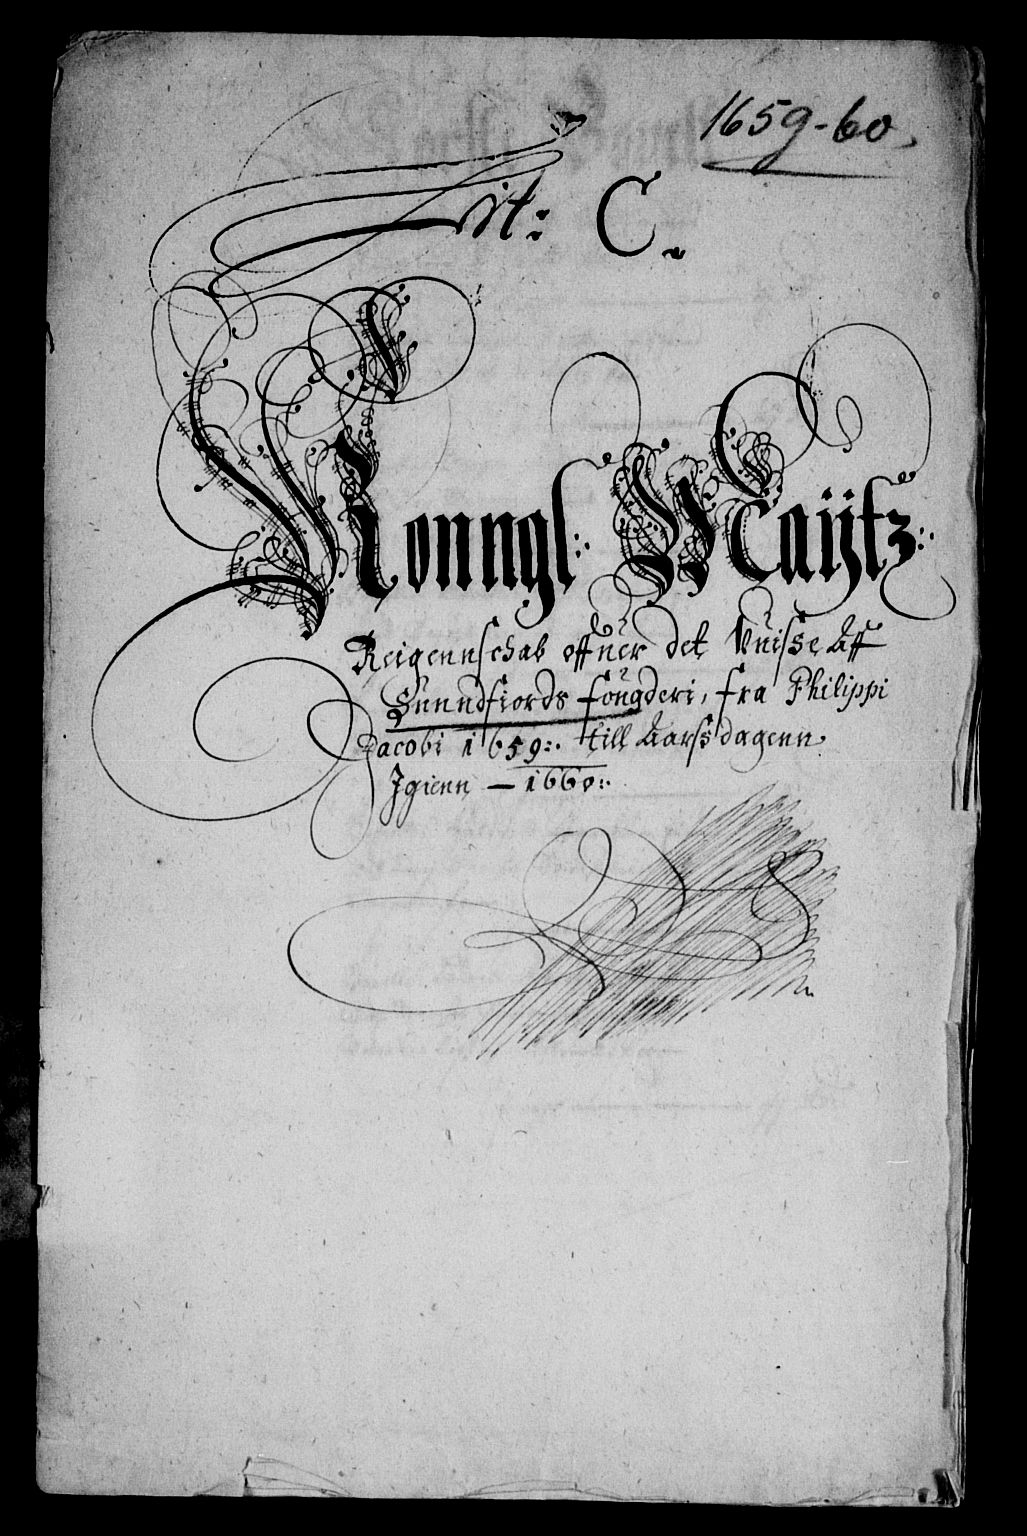 1659-60
Lit: C.
Konngl: Maytz:
Reigennschab offuer det Uuisse Aff
Sunndfiords fougderi, fra Philippi
Jacobi 1659: till Aarsdagenn
Igienn — 1660: